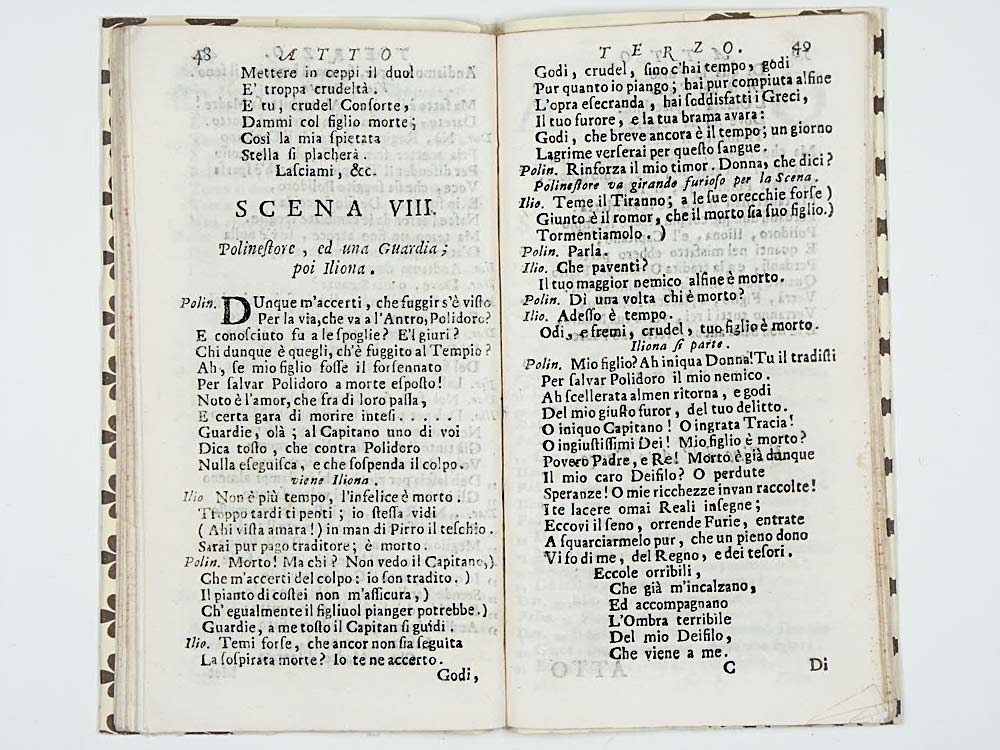 48 ATTO
Mettere in ceppi il duol
E' troppa crudeltà.
E tu, crudel Conſorte,
Dammi col figlio morte;
Così la mia ſpietata
Stella ſi placherà.
Laſciami, &c.
SCENA VIII.
Polineſtore, ed una Guardia;
poi Iliona.
Polin. DUnque m'accerti, che fuggir s'è viſto
Per la via, che va a l'Antro, Polidoro?
E conoſciuto fu a le ſpoglie? E'l giuri?
Chi dunque è quegli, ch'è fuggito al Tempio?
Ah, ſe mio figlio foſſe il forſennato
Per ſalvar Polidoro a morte eſpoſto!
Noto è l'amor, che fra di loro paſſa,
E certa gara di morire inteſi. . . . . .
Guardie, olà; al Capitano uno di voi
Dica toſto, che contra Polidoro
Nulla eſeguiſca, e che ſoſpenda il colpo.
viene Iliona.
Ilio Non è più tempo, l'infelice è morto.
Troppo tardi ti penti; io ſteſſa vidi
(Ahi viſta amara!) in man di Pirro il teſchio.
Sarai pur pago traditore; è morto.
Polin. Morto! Ma chi? Non vedo il Capitano,)
Che m'accerti del colpo: io ſon tradito.)
Il pianto di coſtei non m'aſſicura,)
Ch'egualmente il figliuol pianger potrebbe.)
Guardie, a me toſto il Capitan ſi guidi.
Ilio. Temi forſe, che ancor non ſia ſeguita
La ſoſpirata morte? Io te ne accerto.
Godi,
TERZO. 49
Godi, crudel, ſino c'hai tempo, godi
Pur quanto io piango; hai pur compiuta alfine
L'opra eſecranda, hai ſoddisfatti i Greci,
Il tuo furore, e la tua brama avara:
Godi, che breve ancora è il tempo; un giorno
Lagrime verſerai per queſto ſangue.
Polin. Rinforza il mio timor. Donna, che dici?
Polineſtore va girando furioſo per la Scena.
Ilio. Teme il Tiranno; a le ſue orecchie forſe)
Giunto è il romor, che il morto ſia ſuo figlio.)
Tormentiamolo.)
Polin. Parla.
Ilio. Che paventi?
Il tuo maggior nemico alfine è morto.
Polin. Dì una volta chi è morto?
Ilio. Adeſſo è tempo.
Odi, e fremi, crudel, tuo figlio è morto.
Iliona ſi parte.
Polin. Mio figlio? Ah iniqua Donna! Tu il tradiſti
Per ſalvar Polidoro il mio nemico.
Ah ſcellerata almen ritorna, e godi
Del mio giuſto furor, del tuo delitto.
O iniquo Capitano! O ingrata Tracia!
O ingiuſtiſſimi Dei! Mio figlio è morto?
Povero Padre, e Re! Morto è già dunque
Il mio caro Deifilo? O perdute
Speranze! O mie ricchezze invan raccolte!
Ite lacere omai Reali inſegne;
Eccovi il ſeno, orrende Furie, entrate
A ſquarciarmelo pur, che un pieno dono
Vi fo di me, del Regno, e dei teſori.
Eccole orribili,
Che già m'incalzano,
Ed accompagnano
L'Ombra terribile
Del mio Deifilo,
Che viene a me.
C Di